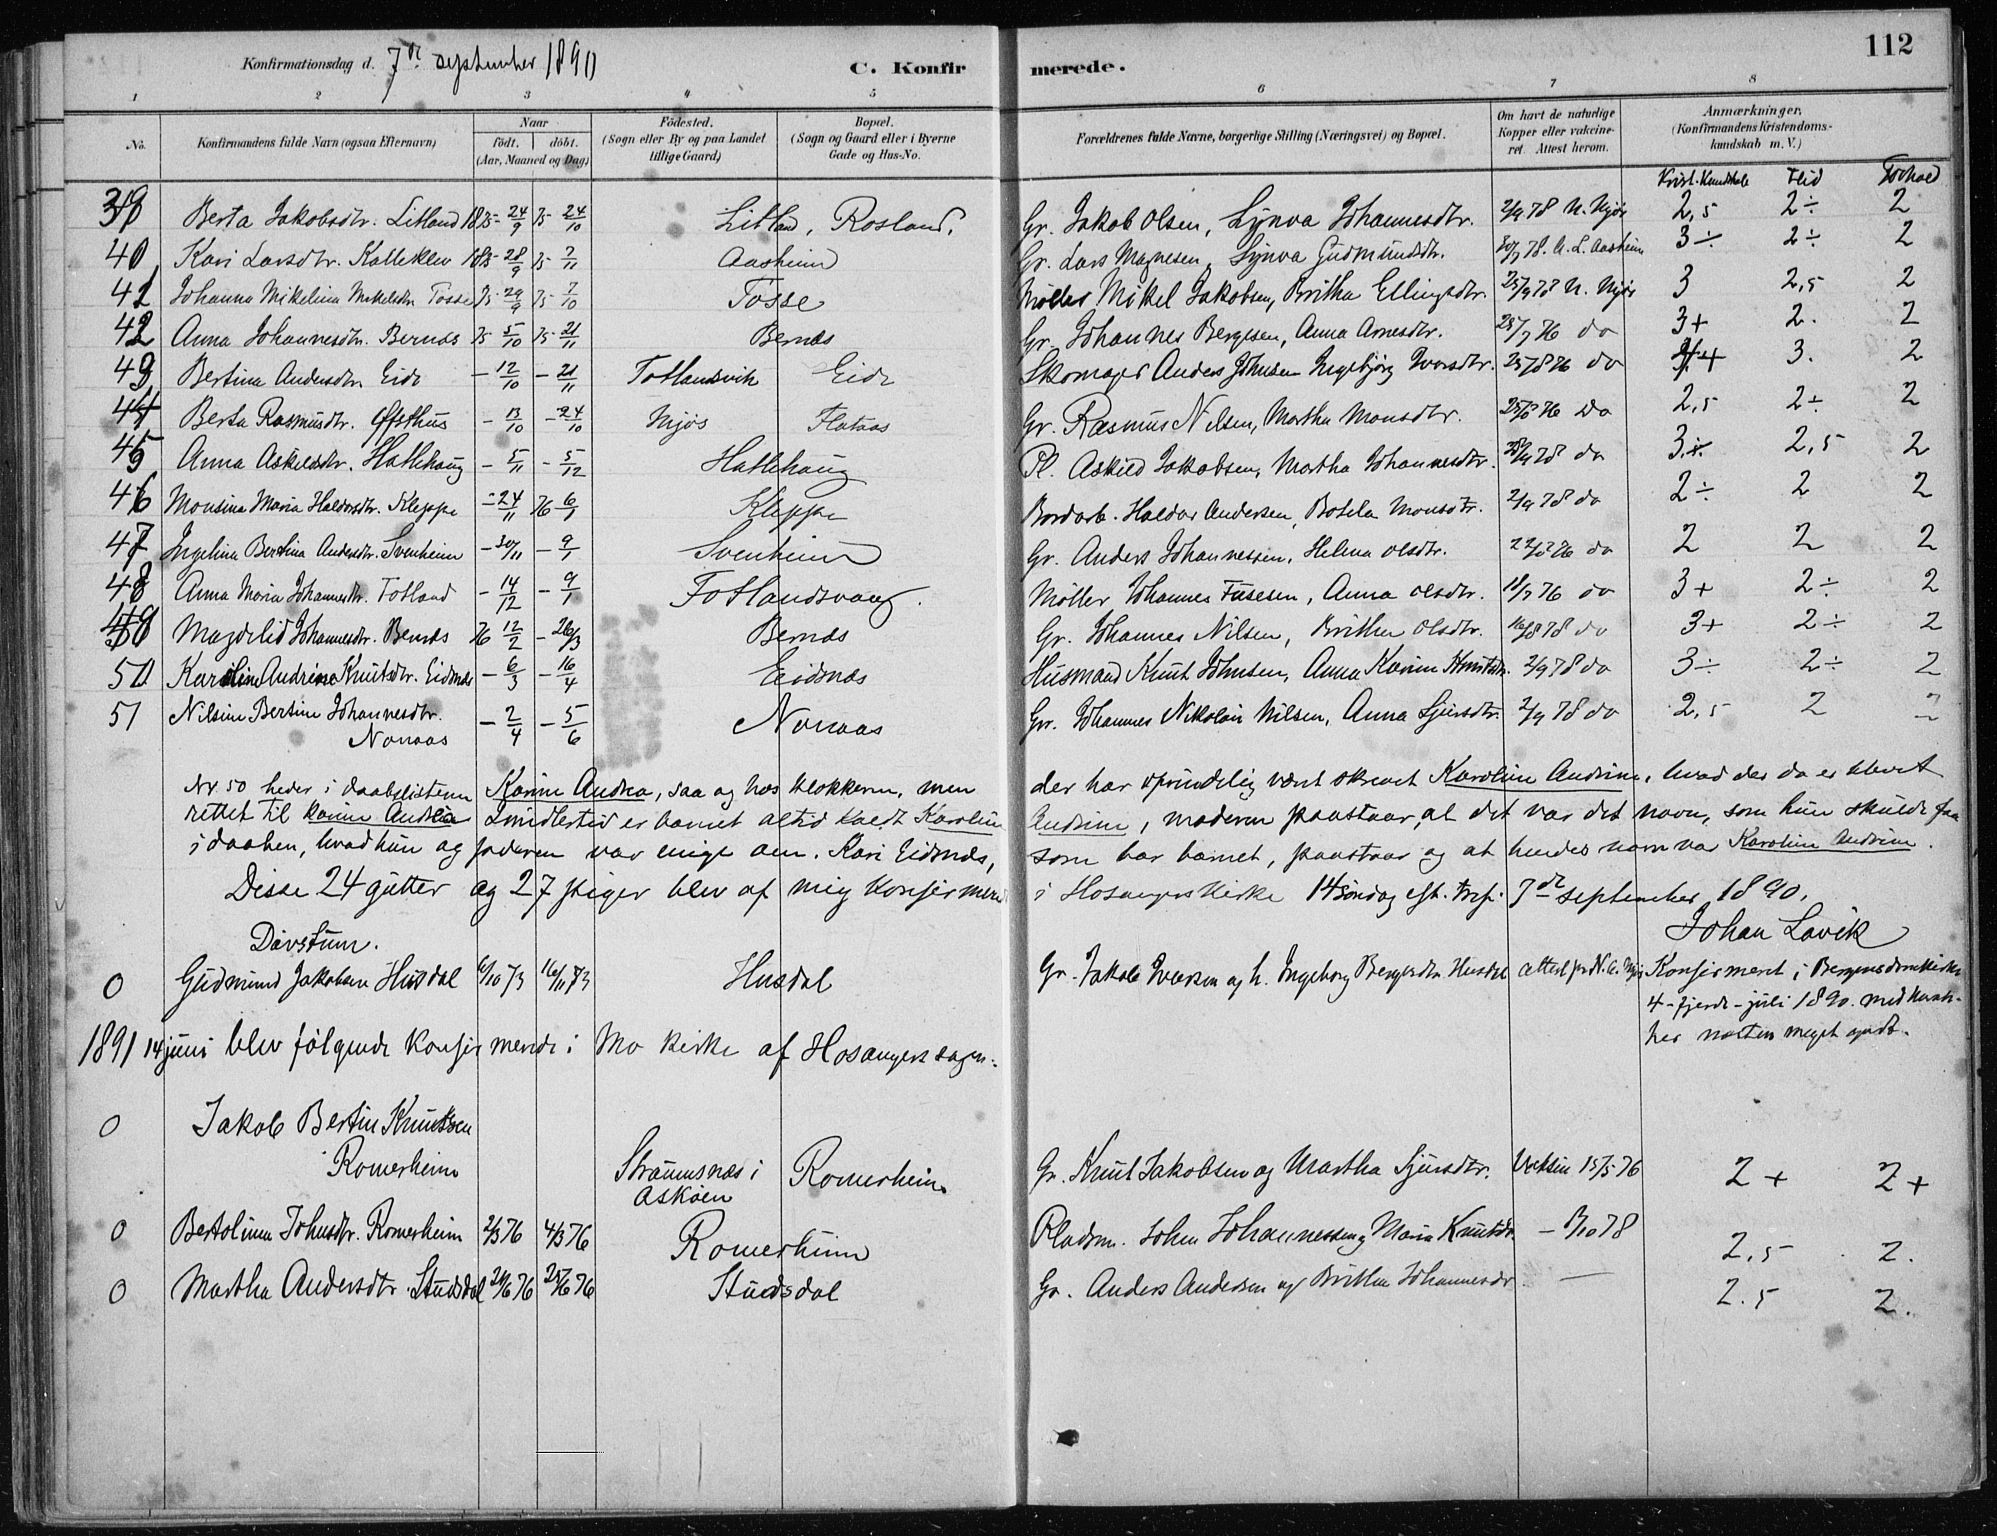 112
Konfirmationsdag d. 7de september 1890
C. Konfirmerede.
1 2 3 4 5 6 7 8
No. Konfirmandens fulde Navn (ogsaa Efternavn) Naar født. døbt. (Aar, Maaned og Dag) Fødested. (Sogn eller By og paa Landet tillige Gaard) Bopæl. (Sogn og Gaard eller i Byerne Gade og Hus-No. Forældrenes fulde Navne, borgerlige Stilling (Næringsvei) og Bopæl. Om havt de naturlige Kopper eller vakcineret. Attest herom. Anmærkninger, (Konfirmandens Kristendomskundskab m. V.)
Krist. Kundskab Flid Forhold
39 Berta Jakobsdtr. Litland 1875 24/9 75 24/10 Litland, Rosland. Gr. Jakob Olsen, Synva Johannesdtr. 2/9 78 N. Njøs 2,5 2÷ 2
40 Kari Larsdtr. Kalleklev 1875 28/9 75 7/11 Aasheim Gr. Lars Magnesen, Synva Gudmundsdtr. 30/7 78. A. L. Aasheim 3÷ 2÷ 2
41 Johanna Mikelina Mikelsdtr. Tosse 75 29/9 75 7/10 Tosse Møller Mikel Jakobsen, Britha Ellingsdtr. 25/9 78 N. Njøs 3 2,5 2
42 Anna Johannesdtr. Bernæs 75 5/10 75 21/11 Bernæs Gr. Johannes Bergesen, Anna Arnesdtr. 28/7 76 do 3+ 2. 2
43 Bertina Andersdtr. Eide – 12/10 – 21/11 Totlandsvik Eide Skomager Anders Johnsen Ingebjørg Iversdtr. 25/8 76 do 3. 2
44 Berta Rasmusdtr. Øfsthus – 13/10 – 24/10 Njøs Flataas Gr. Rasmus Nilsen, Martha Monsdtr. 25/8 76 do 2,5 2÷ 2
45 Anna Askildsdtr. Hatlehaug – 5/11 – 5/12 Hatlehaug Pl. Askild Jakobsen, Martha Johannesdtr. do 3÷ 2,5 2
46 Monsina Maria Haldorsdtr. Kleppe – 24/11 76 6/1 Kleppe Bordarb. Haldor Andersen, Botela Monsdtr. 2/9 78 do 2÷ 2 2
47 Ingelina Bertina Andersdtr. Svenheim – 30/11 – 9/1 Svenheim Gr. Anders Johannessen, Helena Olsdtr. 22/8 76 do 2 2 2
48 Anna Maria Johannesdtr. Totland – 14/12 – 9/1 Totlandsvaag. Møller Johannes Tusesen, Anna Olsdtr. 11/7 76 do 3+ 2÷ 2
49 Magdelid Johannesdtr. Bernæs 76 12/2 – 26/3 Bernæs Gr. Johannes Nilsen, Brithe Olsdtr. 16/8 78 do 3+ 2÷ 2
50 Karoline Andrine Knutsdtr. Eidsnæs – 6/3 – 16/4 Eidsnæs Husmand Knut Johnsen, Anna Karine 2/9 78 do 3÷ 2÷ 2
51 Nilsine Bertine Johannesdtr. – 2/4 – 5/6 Nonaas Gr. Johannes Nikolai Nilsen, Anna Sjursdtr. 2/9 78 do 2,5 2 2
Nonaas
Nr 50 heder i daabslisten Karine Andrea, saa og hos klokkeren, men der har oprindelig været skrevet Karoline Andrine, hvad der da er blevet
rettet til Karine Andrea Imidlertid er barnet altid kaldt Karoline Andrine, moderen paastaar, at det var det navn, som hun skulde faa
i daaben, hvad hun og faderen var enige om. Kari Eidsnæs, som bar barnet, paastaar og at hendes navn var Karoline Andrine.
Disse 24 gutter og 27 piger blev af mig konfirmeret i Hosangers kirke 14 søndag eft. tref. 7de september 1890.
Johan Lavik
Davstum.
0 Gudmund Jakobsen Husdal 6/10 73 16/11 73 Husdal Gr. Jakob Iversen og h. Ingeborg Bergesdtr. Husdal attest fr N. A. Njøs Konfirmeret i Bergens domkirke
4 – fjerde – juli 1890. med
her næsten meget godt.
1891 14 juni blev følgende konfirmerede i Mo kirke af Hosangers sogn:
0 Jakob Bertin Knutsen
Romerheim Straumsnæs i Askøen Romerheim Gr. Knut Jakobsen og Martha Sjursdtr. Vaksin 15/5 76 2+ 2+
0 Bertolina Johnsdtr. Romerheim 2/3 76 4/3 76 Romerheim Pladsm. John Johannessen og Maria Knutsdtr – 8/10 78 2,5 2.
0 Martha Andersdtr. Studsdal 24/6 76 25/6 76 Studsdal Gr. Anders Andersen og Britha Johannesdtr – 2.5 2.